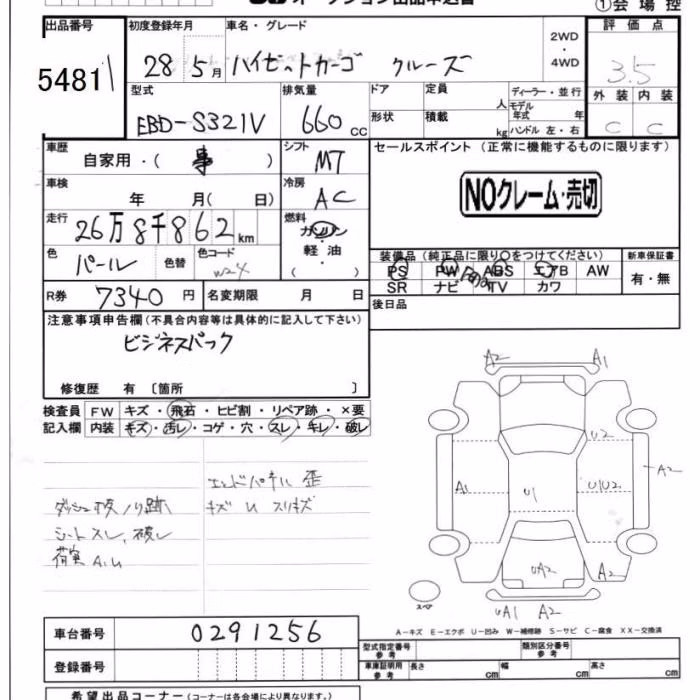 オークション出品申込書
①会場控
出品番号 初度登録年月 車名・グレード 評価点
54811 28 5月 ハイゼットカーゴ クルーズ 2WD・4WD 3.5
型式 排気量 ドア 定員 人 ディーラー・並行 外装 内装
EBD-S321V 660cc 形状 積載 kg モデル年式 年 ハンドル 左・右 C C
車歴 自家用・(事) シフト MT セールスポイント (正常に機能するものに限ります)
車検 年 月(日) 冷房 AC NOクレーム・売切
走行 26万8千862km 燃料 ガソリン
色 パール 色替 色コード W24 軽油 ( )
装備品(純正品に限り○をつけてください) 新車保証書
PS PW ABS エアB AW 有・無
SR ナビ TV カワ
R券 7340円 名変期限 月 日 後日品
注意事項申告欄(不具合内容等は具体的に記入して下さい)
ビジネスパック
修復歴 有 〔箇所 〕
検査員 FW キズ・飛石・ヒビ割・リペア跡・×要
記入欄 内装 キズ・汚レ・コゲ・穴・スレ・キレ・破レ
エンドパネル 歪
ダッシュ 穴 ノリ跡 キズ U スリキズ
シートスレ、破レ
荷室 A.U
A2 A1
U2
A2
A1 U1 U1U2
UA2 A2
スペア
UA1 A2
A-キズ E-エクボ U-凹み W-補修跡 S-サビ C-腐食 XX-交換済
車台番号 0291256
型式指定番号 参考 類別区分番号 参考
登録番号
車庫証明用 参考 長さ cm 幅 cm 高さ cm
希望出品コーナー(コーナーは各会場により異なります。)